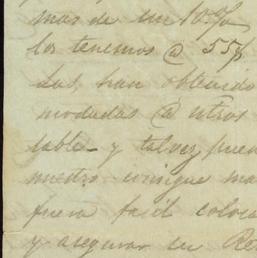 mas de un 10%
los tenemos @ 55
Las han obtenido
modadas @ otros
table y talvez pue
nuestro
fuera facil coloca
y asegurar su Re